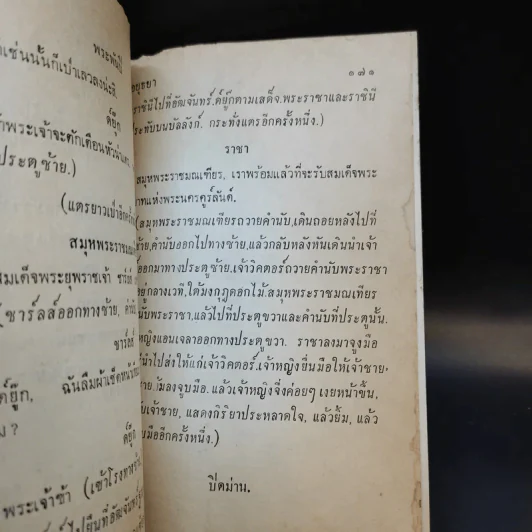 พระพันปี
เช่นนั้นก็เป่าเลวลงน่ะสิ
ดยุ๊ก
พระเจ้าจะตักเตือน
ประตูซ้าย.)
(แตรยาวเป่าอีก
สมุหพระราชมณ
สมเด็จพระยุพราชเจ้า
(ชาร์ลส์ออกทางซ้าย,
ชาร์ลส์
ฉันลืมผ้าเช็ดหน้า
ม ?
ดยุ๊ก
พระเจ้าข้า (เข้าโรงทาง
ไปยืนที่อัฒจันทร์
ยุธยา
๑๗๑
ราชินีไปที่อัฒจันทร์. ดยุ๊กตามเสด็จ. พระราชาและราชินี
ประทับบนบัลลังก์. กระทั่งแตรอีกครั้งหนึ่ง.)
ราชา
สมุหพระราชมณเฑียร, เราพร้อมแล้วที่จะรับสมเด็จพระ
แห่งพระนครคูร์ลันด์.
(สมุหพระราชมณเฑียรถวายคำนับ, เดินถอยหลังไปที่
ซ้าย, คำนับออกไปทางซ้าย, แล้วกลับหลังหันเดินนำเจ้า
ออกมาทางประตูซ้าย. เจ้าวิคตอร์ถวายคำนับพระราชา
อยู่กลางเวที, ใต้มงกุฎดอกไม้. สมุหพระราชมณเฑียร
คำนับพระราชา, แล้วไปที่ประตูขวาและคำนับที่ประตูนั้น.
หญิงแอนเจลาออกทางประตูขวา. ราชาลงมาจูงมือ
นำไปส่งให้แก่เจ้าวิคตอร์. เจ้าหญิงยื่นมือให้เจ้าชาย,
ก้มลงจูบมือ. แล้วเจ้าหญิงจึ่งค่อยๆ เงยหน้าขึ้น,
เจ้าชาย, แสดงกิริยาประหลาดใจ, แล้วยิ้ม, แล้ว
มืออีกครั้งหนึ่ง.)
ปิดม่าน.